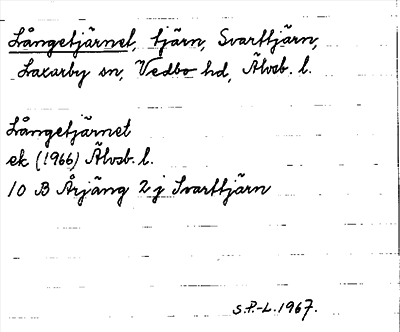 Långetjärnet, tjärn, Svarttjärn,
Laxarby sn, Vedbo hd, Älvsb. l.
Långetjärnet
ek (1966) Älvsb. l.
10 B Årjäng 2 j Svarttjärn
S.P.-L. 1967.